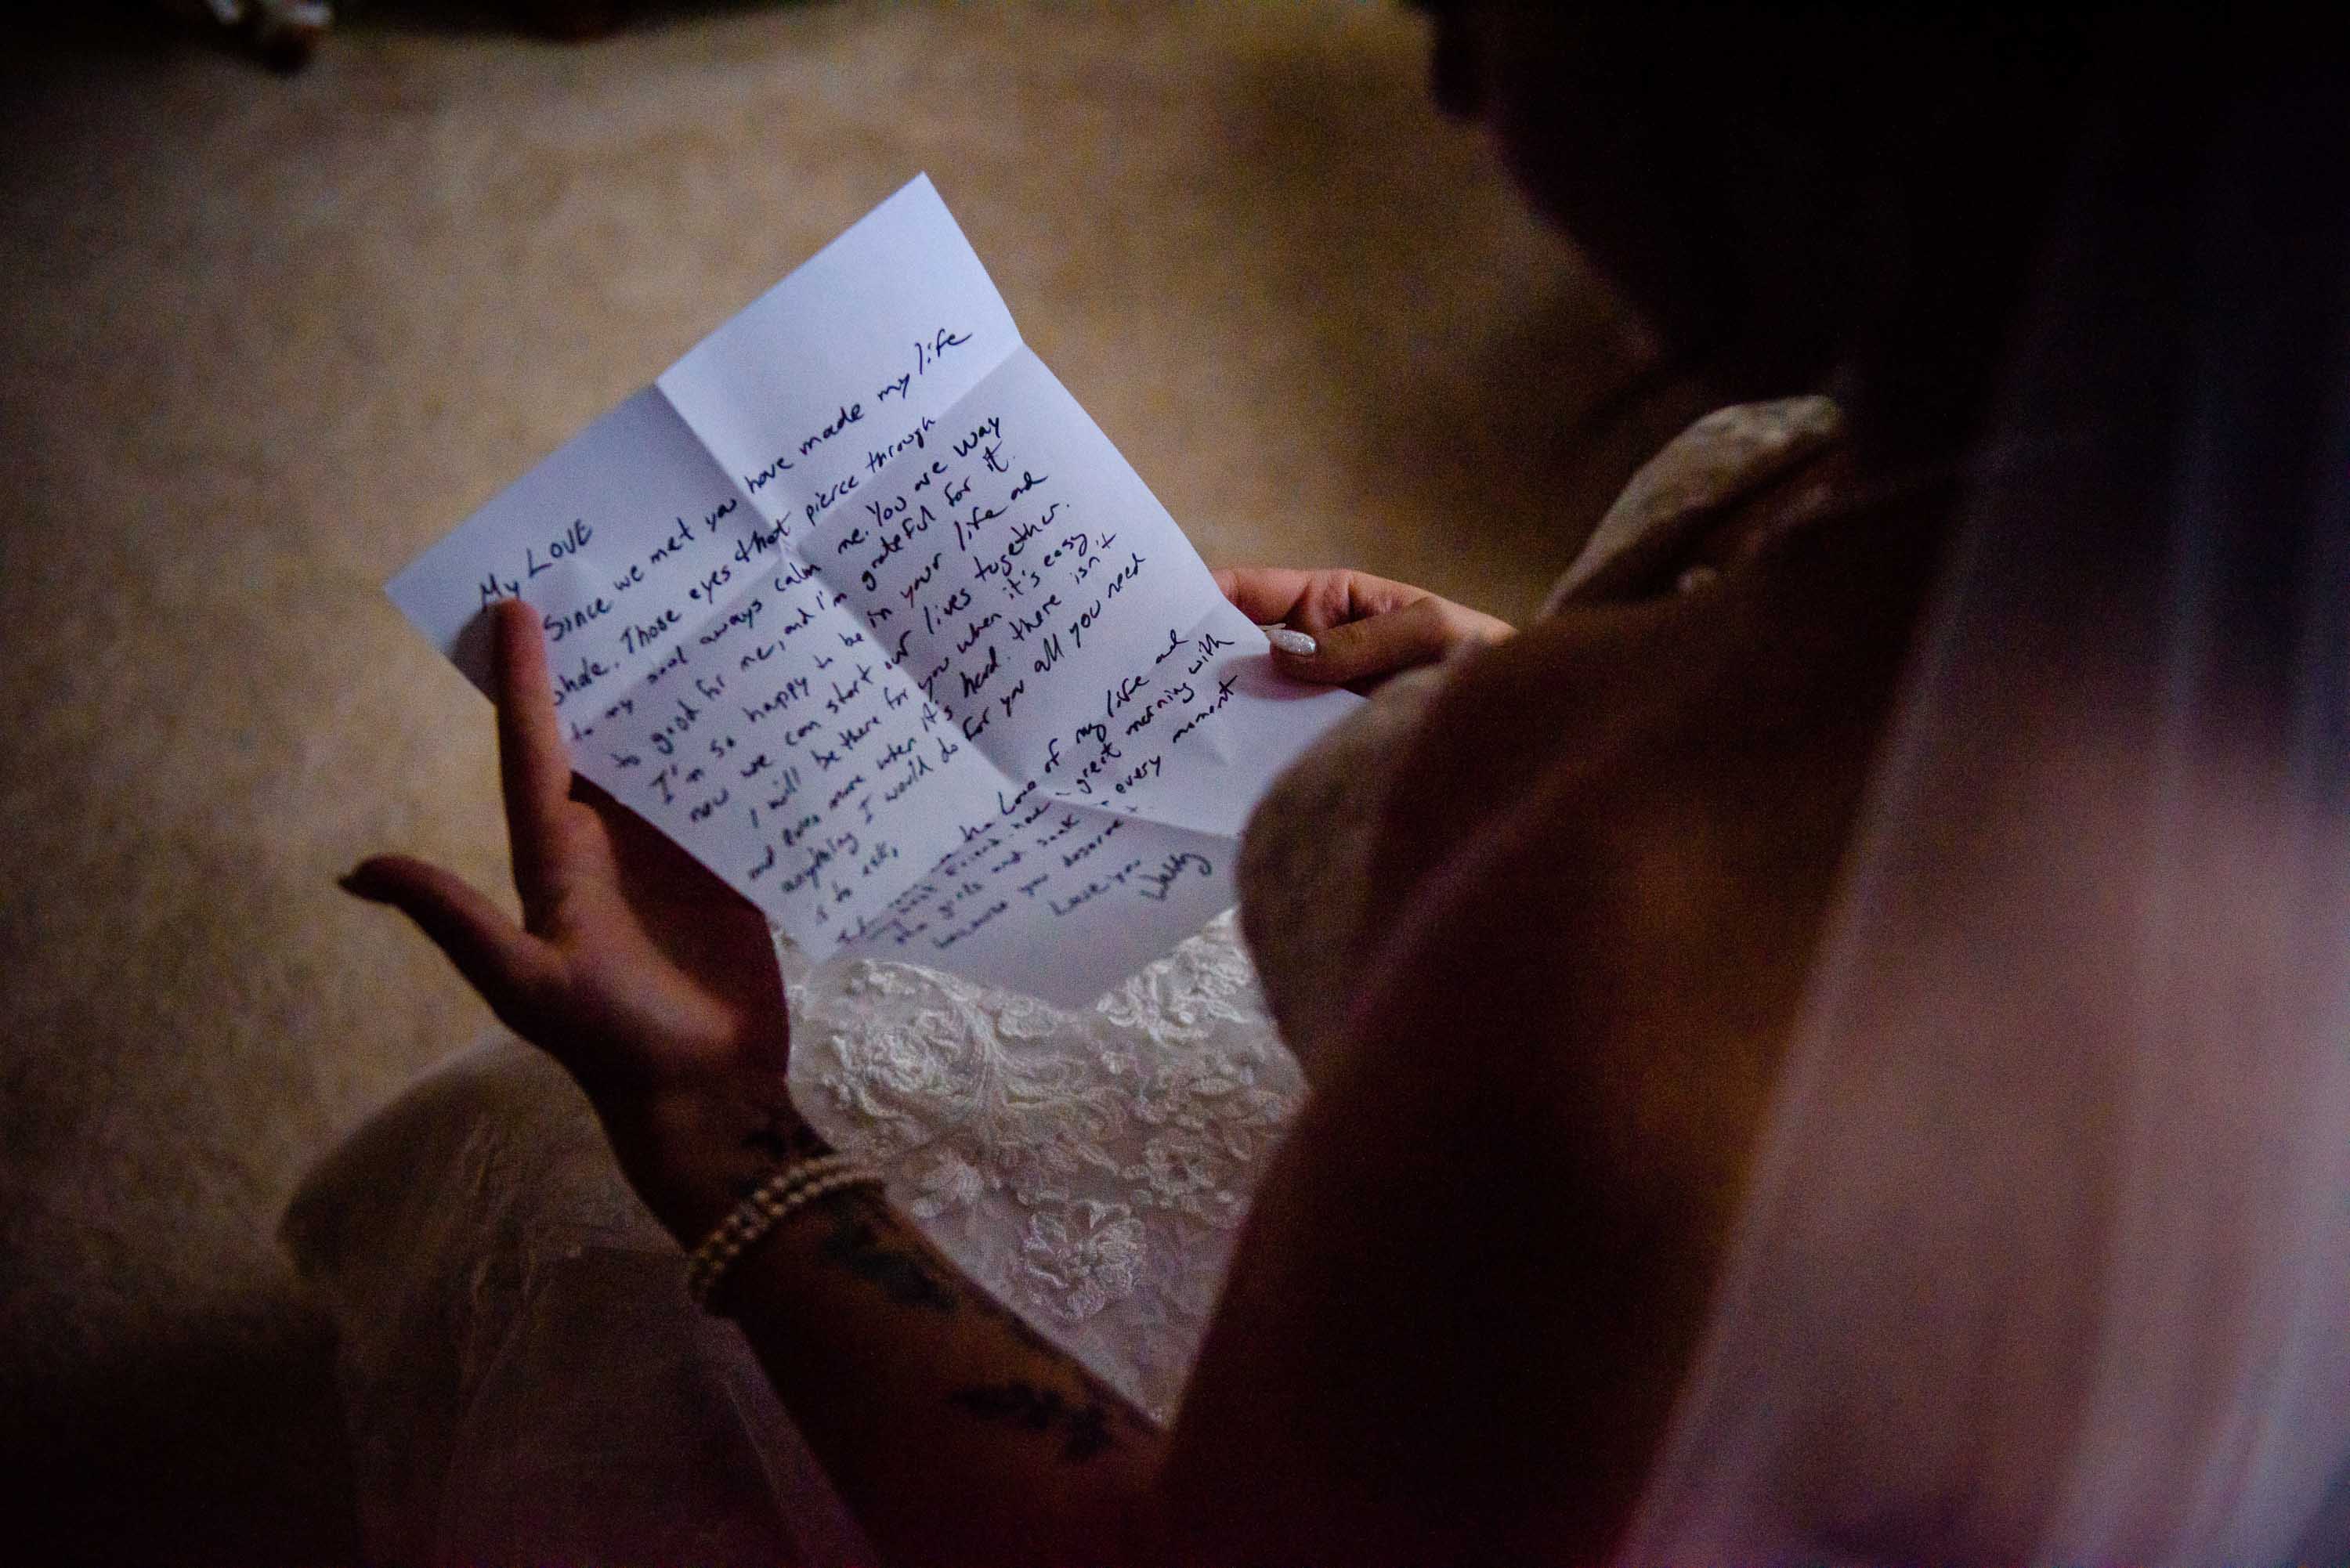 My LOVE
Since we met you have made my life
whole. Those eyes that pierce through
to my soul always calm me. You are way
to good for me, and I'm grateful for it.
I'm so happy to be in your life and
now we can start our lives together.
I will be there for you when it's easy
and even more when it's hard. there isn't
anything I would do for you all you need
is to ask,
love of my life and
best friend have great morning with
the girls and soak every moment
because you deserve it
Love you